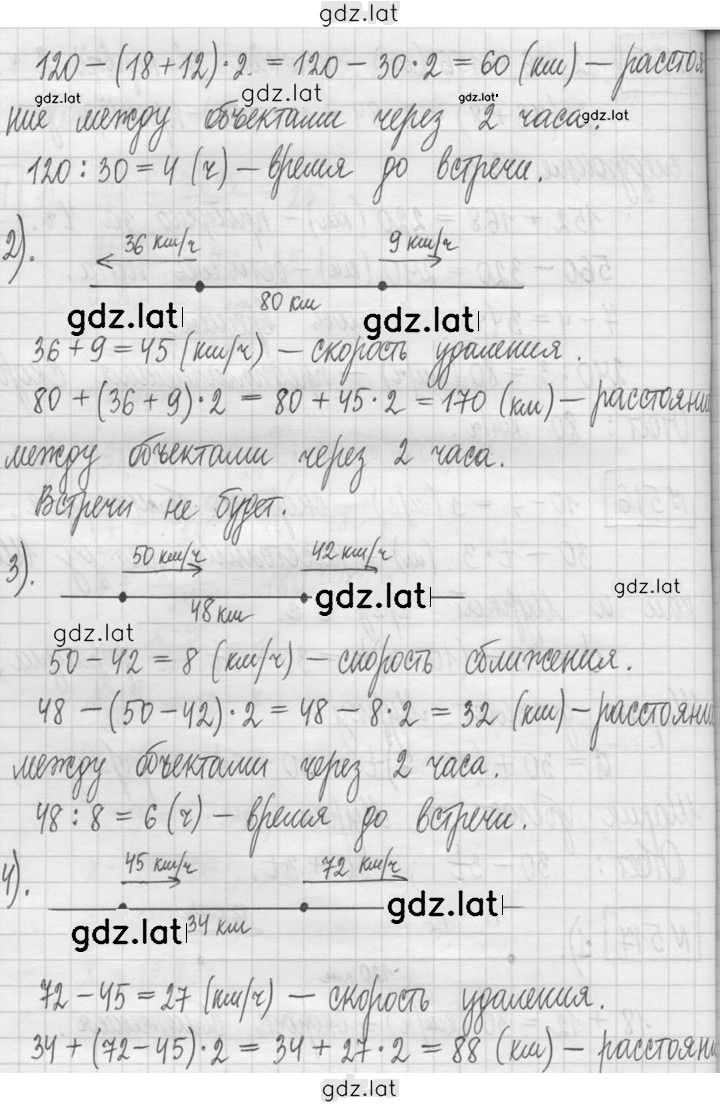 gdz.lat
120 − (18 + 12) · 2 = 120 − 30 · 2 = 60 (км) — расстоя
gdz.lat gdz.lat gdz.lat gdz.lat
ние между объектами через 2 часа.
120 : 30 = 4 (ч) — время до встречи.
2). 36 км/ч 9 км/ч
80 км
gdz.lat gdz.lat
36 + 9 = 45 (км/ч) — скорость удаления.
80 + (36 + 9) · 2 = 80 + 45 · 2 = 170 (км) — расстояни
между объектами через 2 часа.
Встречи не будет.
3). 50 км/ч 42 км/ч
gdz.lat gdz.lat
48 км
gdz.lat
50 − 42 = 8 (км/ч) — скорость сближения.
48 − (50 − 42) · 2 = 48 − 8 · 2 = 32 (км) — расстояни
между объектами через 2 часа.
48 : 8 = 6 (ч) — время до встречи.
4). 45 км/ч 72 км/ч
gdz.lat
34 км
gdz.lat
72 − 45 = 27 (км/ч) — скорость удаления.
34 + (72 − 45) · 2 = 34 + 27 · 2 = 88 (км) — расстояни
gdz.lat